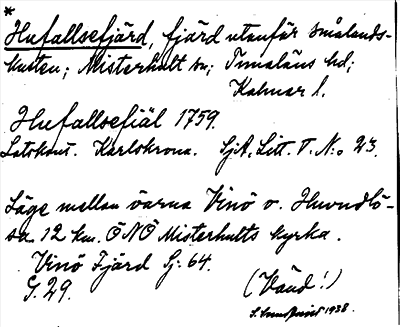 *
Hufallsefjärd, fjärd utanför smålands-
kusten; Misterhult sn; Tunaläns hd;
Kalmar l.
Hufallsefiäl 1759.
Lotskont. Karlskrona. Sjk, Litt. V. N:o 23.
Läge mellan öarna Vinö o. Huvudlö-
sa. 12 km. ÖNÖ Misterhults kyrka.
Vinö Fjärd Sj: 64.
G. 29.
(Vänd!)
1938.